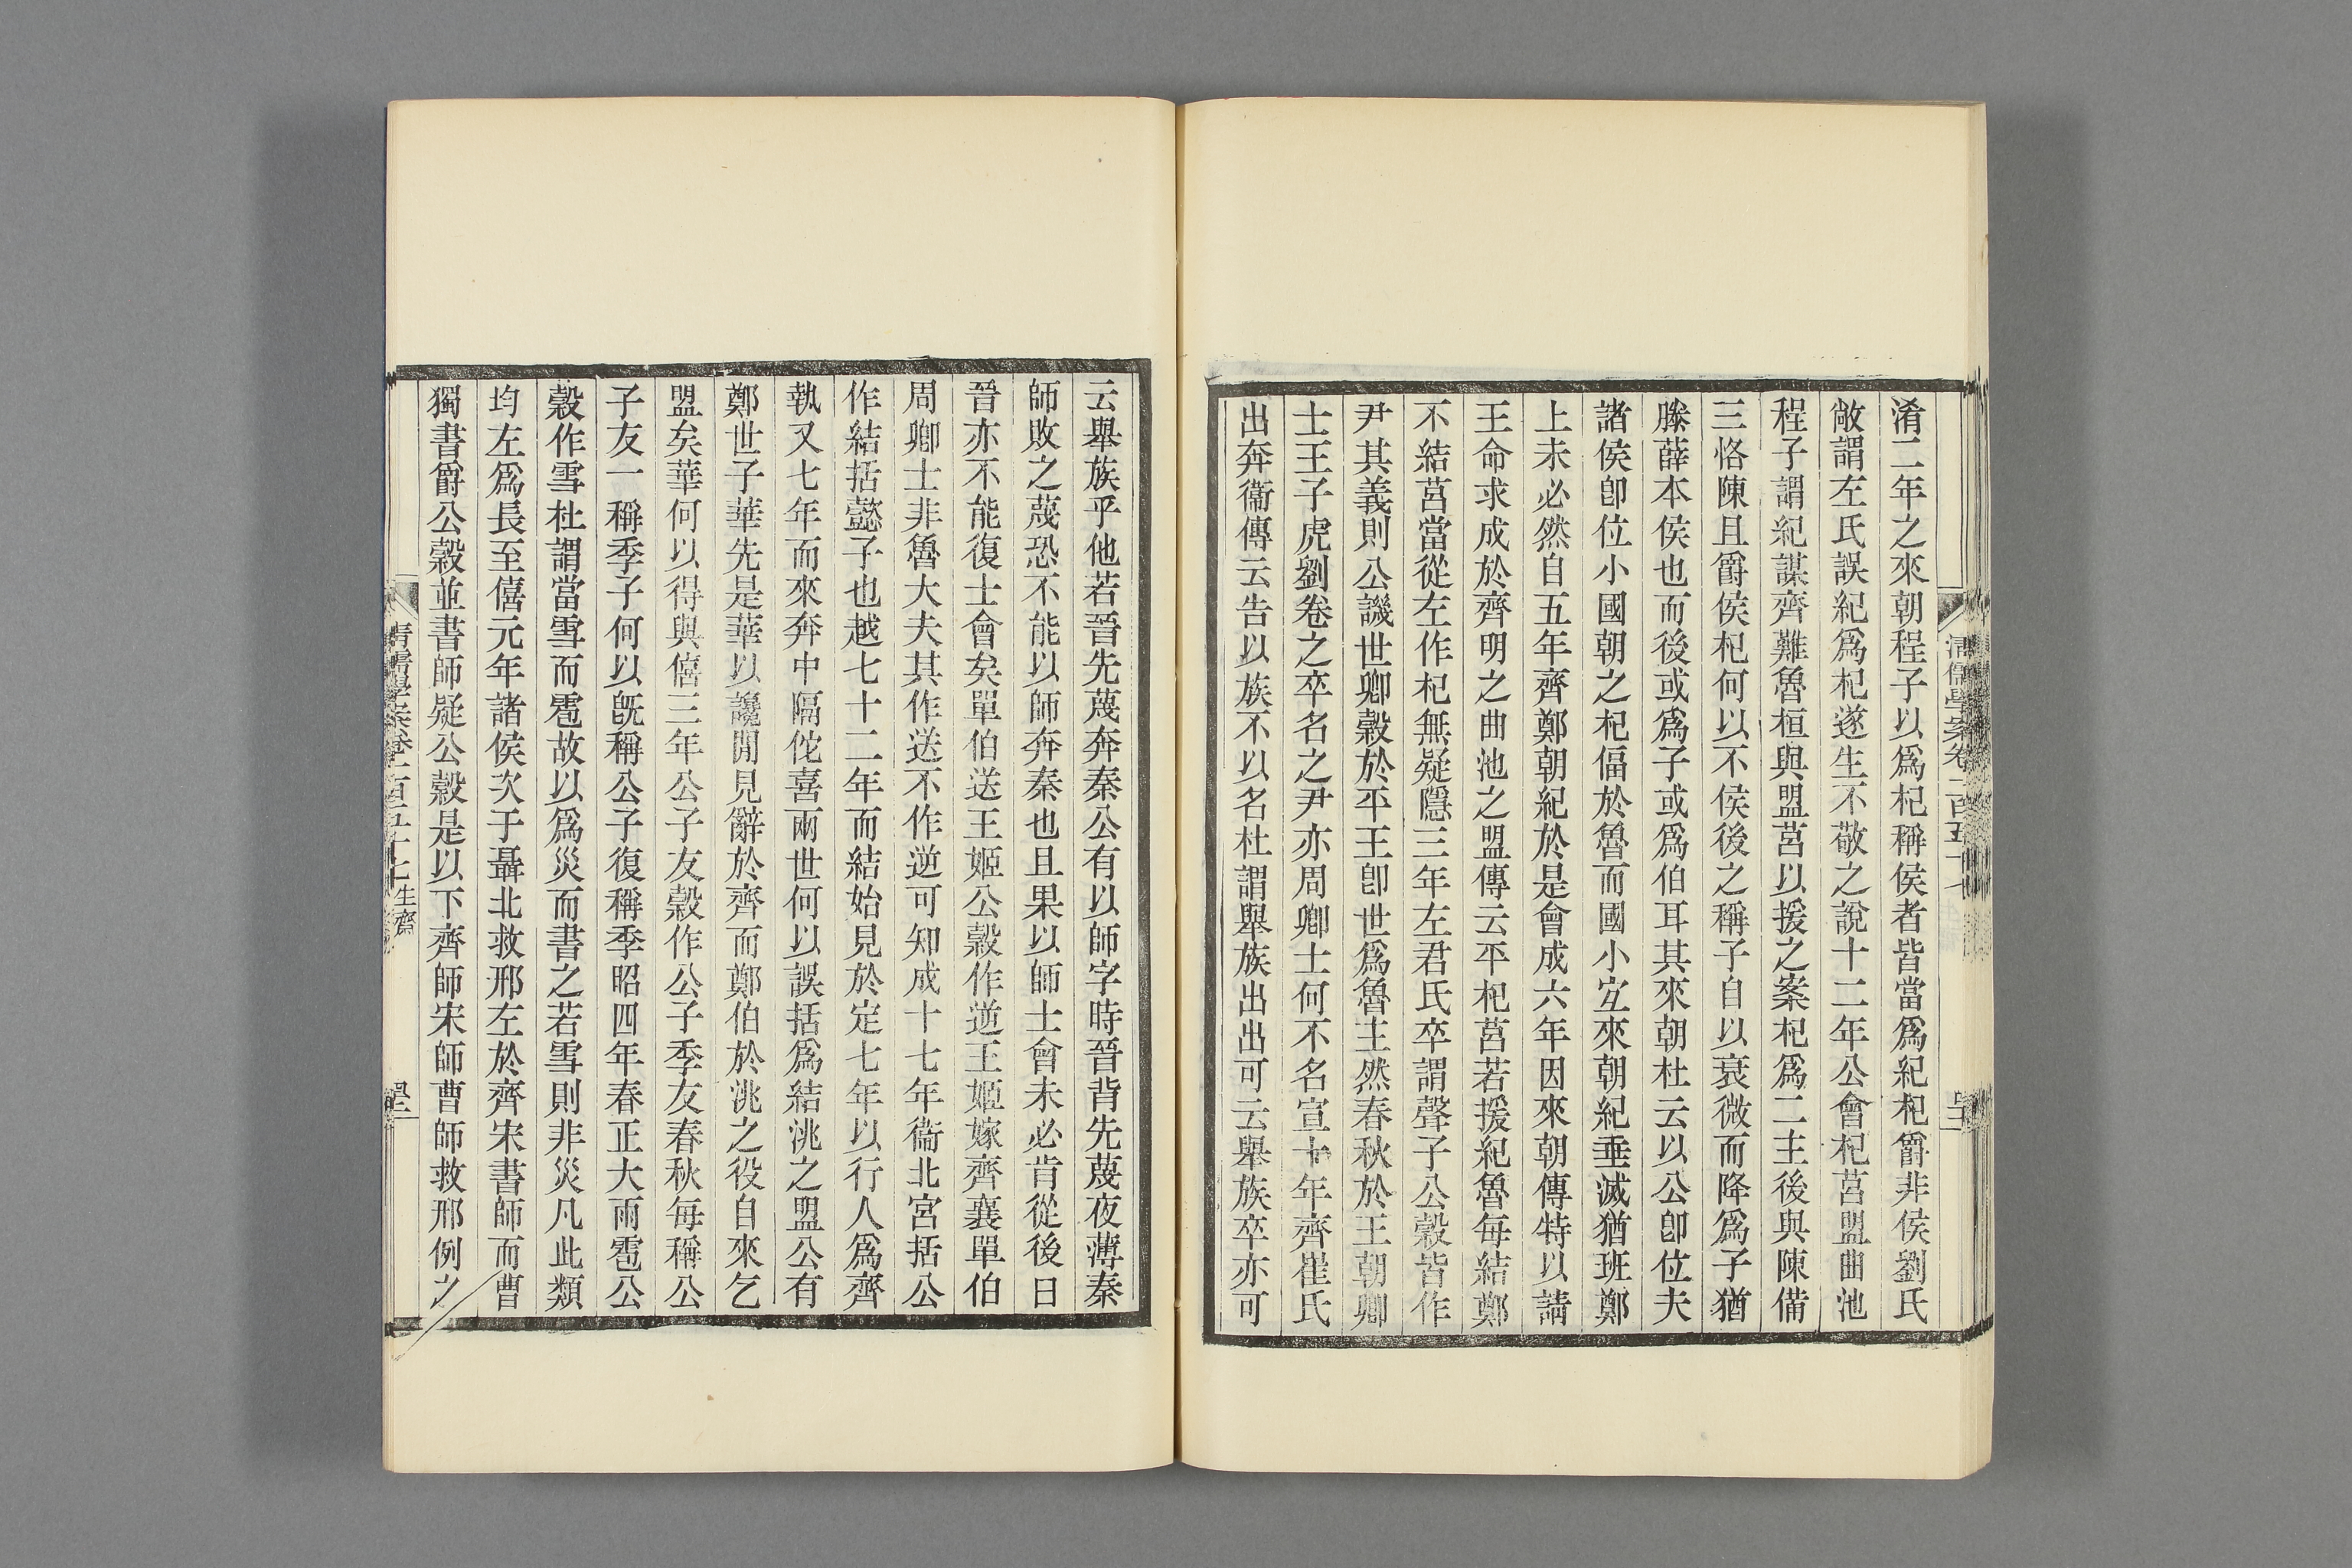 淆二年之來朝程子以爲杞稱侯者皆當爲紀杞爵非侯劉氏
敞謂左氏誤紀爲杞遂生不敬之說十二年公會杞莒盟曲池
程子謂紀謀齊難魯桓與盟莒以援之案杞爲二主後與陳備
三恪陳且爵侯杞何以不侯後之稱子自以衰微而降爲子猶
滕薛本侯也而後或爲子或爲伯耳其來朝杜云以公卽位夫
諸侯卽位小國朝之杞偪於魯而國小宐來朝紀垂滅猶班鄭
上未必然自五年齊鄭朝紀於是會成六年因來朝傳特以請
王命求成於齊明之曲池之盟傳云平杞莒若援紀魯每結鄭
不結莒當從左作杞無疑隱三年左君氏卒謂聲子公穀皆作
尹其義則公譏世卿穀於平王卽世爲魯主然春秋於王朝卿
士王子虎劉卷之卒名之尹亦周卿士何不名宣十年齊崔氏
出奔衞傳云告以族不以名杜謂舉族出出可云舉族卒亦可
云舉族乎他若晉先蔑奔秦公有以師字時晉背先蔑夜薄秦
師敗之蔑恐不能以師奔秦也且果以師士會未必肯從後日
晉亦不能復士會矣單伯送王姬公穀作逆王姬嫁齊襄單伯
周卿士非魯大夫其作送不作逆可知成十七年衞北宮括公
作結括懿子也越七十二年而結始見於定七年以行人爲齊
執又七年而來奔中隔佗喜兩世何以誤括爲結洮之盟公有
鄭世子華先是華以讒閒見辭於齊而鄭伯於洮之役自來乞
盟矣華何以得與僖三年公子友穀作公子季友春秋每稱公
子友一稱季子何以旣稱公子復稱季昭四年春正大雨雹公
穀作雪杜謂當雪而雹故以爲災而書之若雪則非災凡此類
均左爲長至僖元年諸侯次于聶北救邢左於齊宋書師而曹
獨書爵公穀並書師疑公穀是以下齊師宋師曹師救邢例之